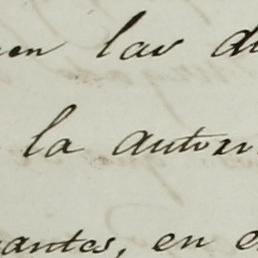 en las d
la autor
antes, en e